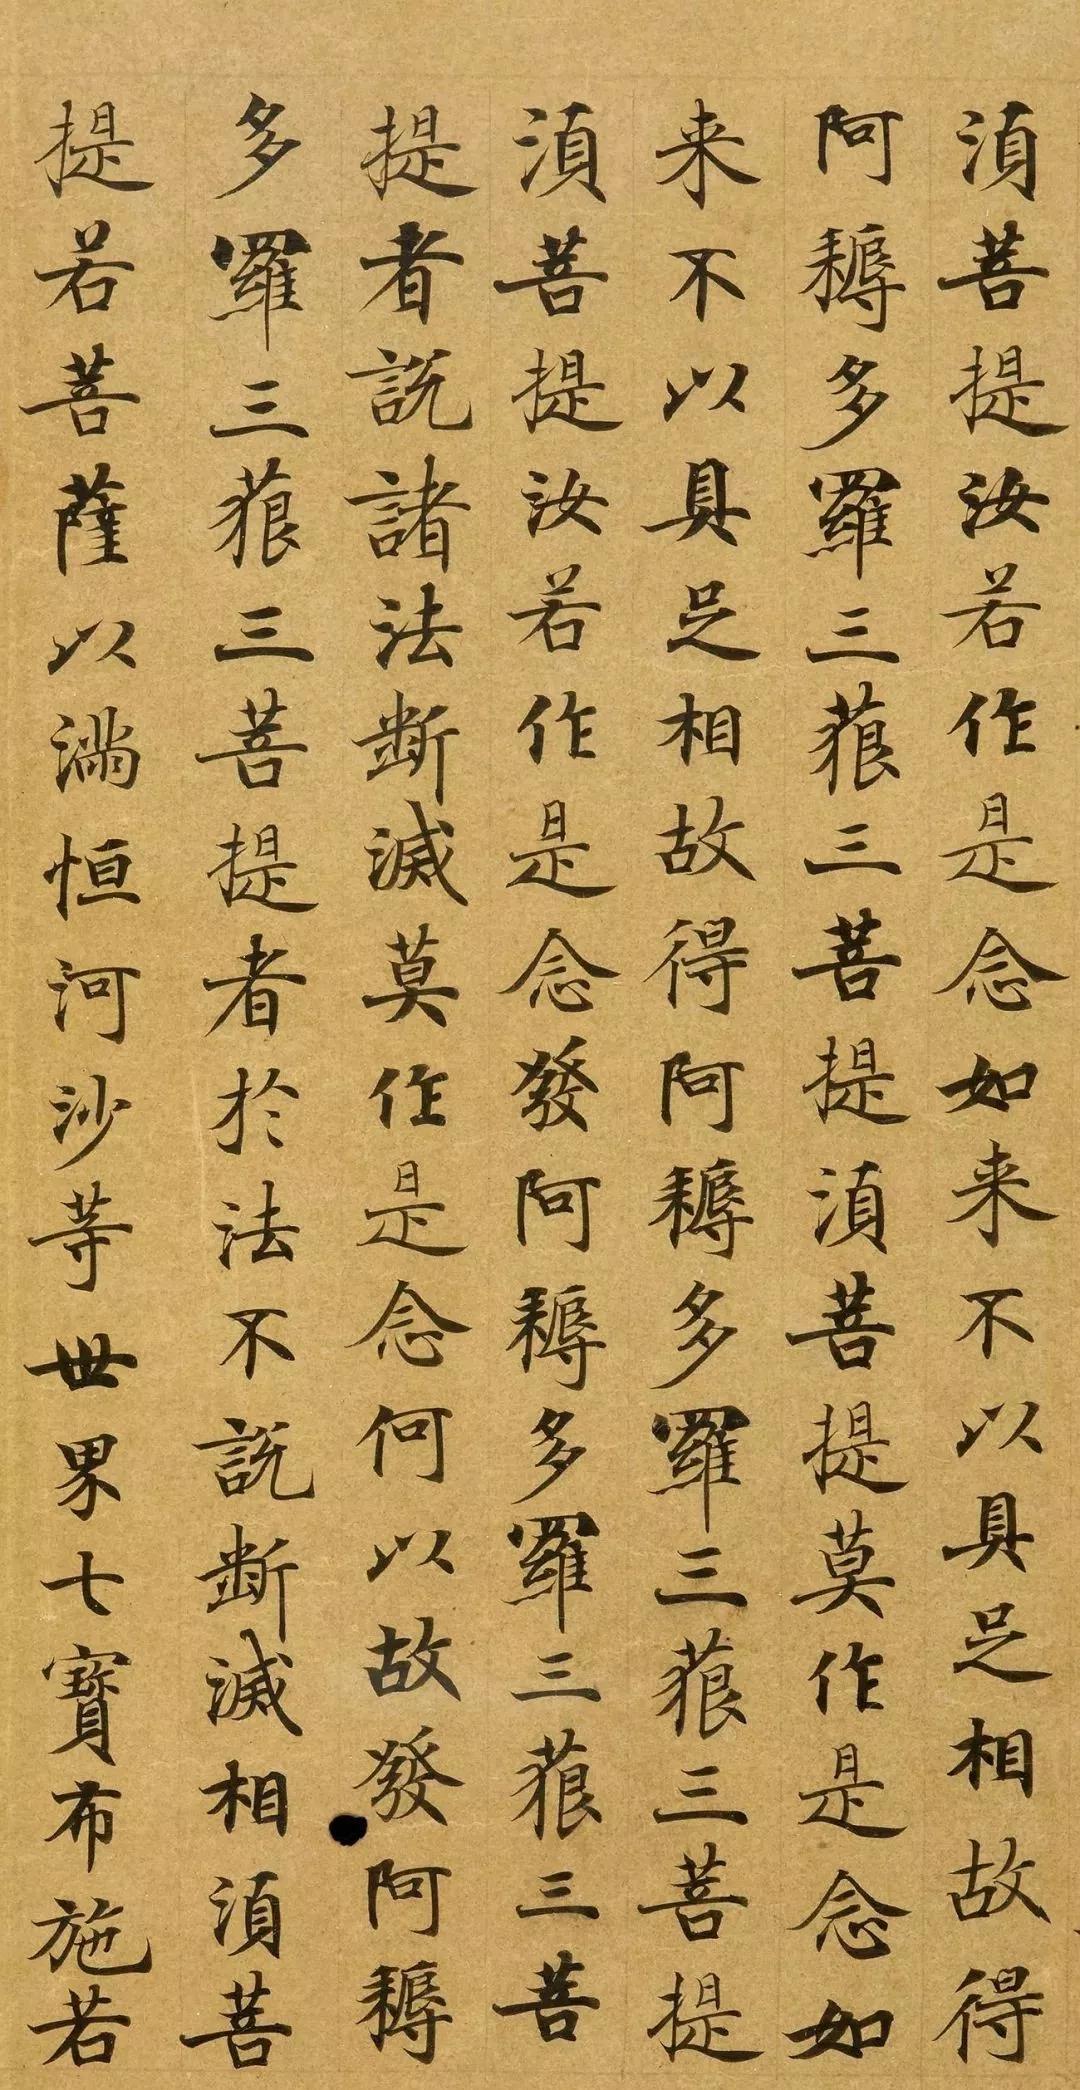 湏菩提汝若作是念如来不以具足相故得
阿耨多羅三藐三菩提湏菩提莫作是念如
来不以具足相故得阿耨多羅三藐三菩提
湏菩提汝若作是念發阿耨多羅三藐三菩
提者說諸法断滅莫作是念何以故發阿耨
多羅三藐三菩提者於法不說断滅相湏菩
提若菩薩以滿恒河沙等世界七寶布施若